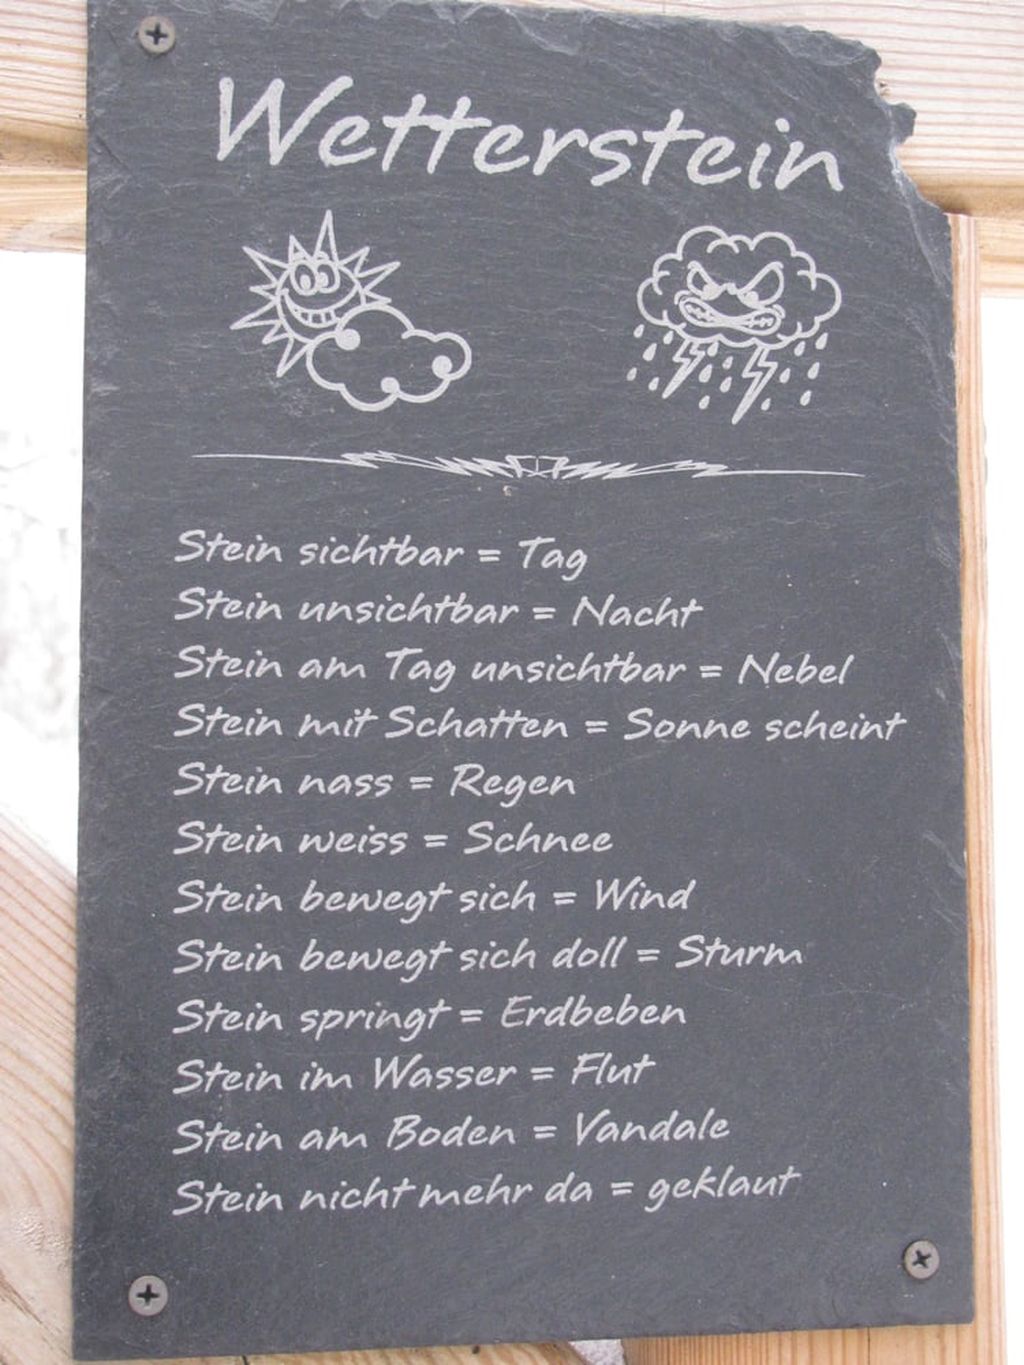 Wetterstein
Stein sichtbar = Tag
Stein unsichtbar = Nacht
Stein am Tag unsichtbar = Nebel
Stein mit Schatten = Sonne scheint
Stein nass = Regen
Stein weiss = Schnee
Stein bewegt sich = Wind
Stein bewegt sich doll = Sturm
Stein springt = Erdbeben
Stein im Wasser = Flut
Stein am Boden = Vandale
Stein nicht mehr da = geklaut